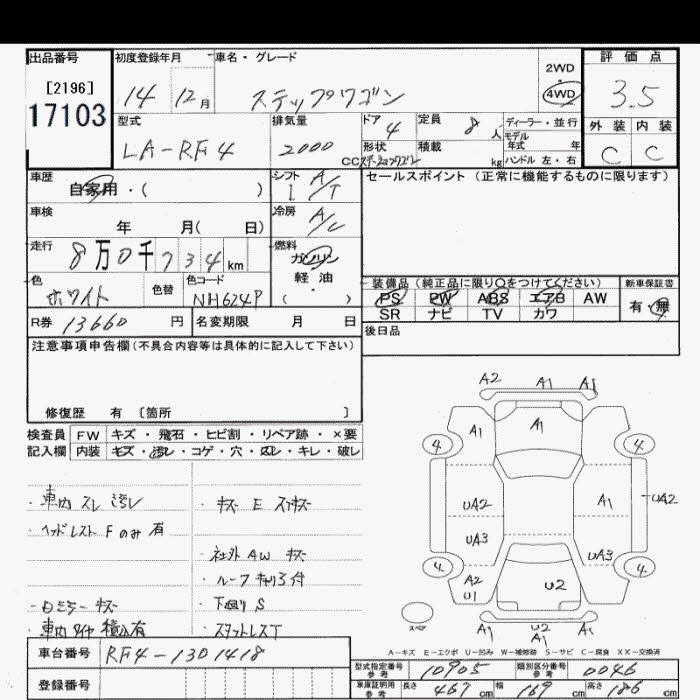 出品番号
[2196]
17103
初度登録年月
14 12月
車名・グレード
ステップワゴン
2WD
・
4WD
評価点
3.5
外装 内装
C C
型式
LA-RF4
排気量
2000
CC
ドア 4
定員 8 人
ディーラー・並行
モデル
年式 年
形状 ステーションワゴン
積載 kg
ハンドル 左・右
車歴
自家用・( )
シフト
I A/T
セールスポイント (正常に機能するものに限ります)
車検
年 月( 日)
冷房
A/C
走行
8万0千734km
燃料
ガソリン
軽・油
( )
色
ホワイト
色替
色コード
NH624P
装備品 (純正品に限り○をつけてください)
PS PW ABS エアB AW
SR ナビ TV カワ
新車保証書
有・無
R券 13660 円
名変期限 月 日
後日品
注意事項申告欄(不具合内容等は具体的に記入して下さい)
修復歴 有 〔箇所 〕
検査員
記入欄
FW キズ・飛石・ヒビ割・リペア跡・×要
内装 キズ・汚レ・コゲ・穴・凹レ・キレ・破レ
・車内 スレ 汚レ
・ヘッドレスト Fのみ 有
・キズ E スリキズ
・社外 AW キズ
・下廻り S
・車内 タイヤ 積込有
・スタットレスT
A2 A1 A1
A1 A1
4 4
UA2 A1 UA2
UA3 UA3
4 4
A2
U1
U2
スペア
A1 U2 A1
A1
A-キズ E-エクボ U-凹み W-補修跡 S-サビ C-腐食 XX-交換済
車台番号 RF4-1301418
登録番号
型式指定番号
参考
10905
類別区分番号
参考
0046
車庫証明用
参考
長さ 467 cm
幅 169 cm
高さ 186 cm